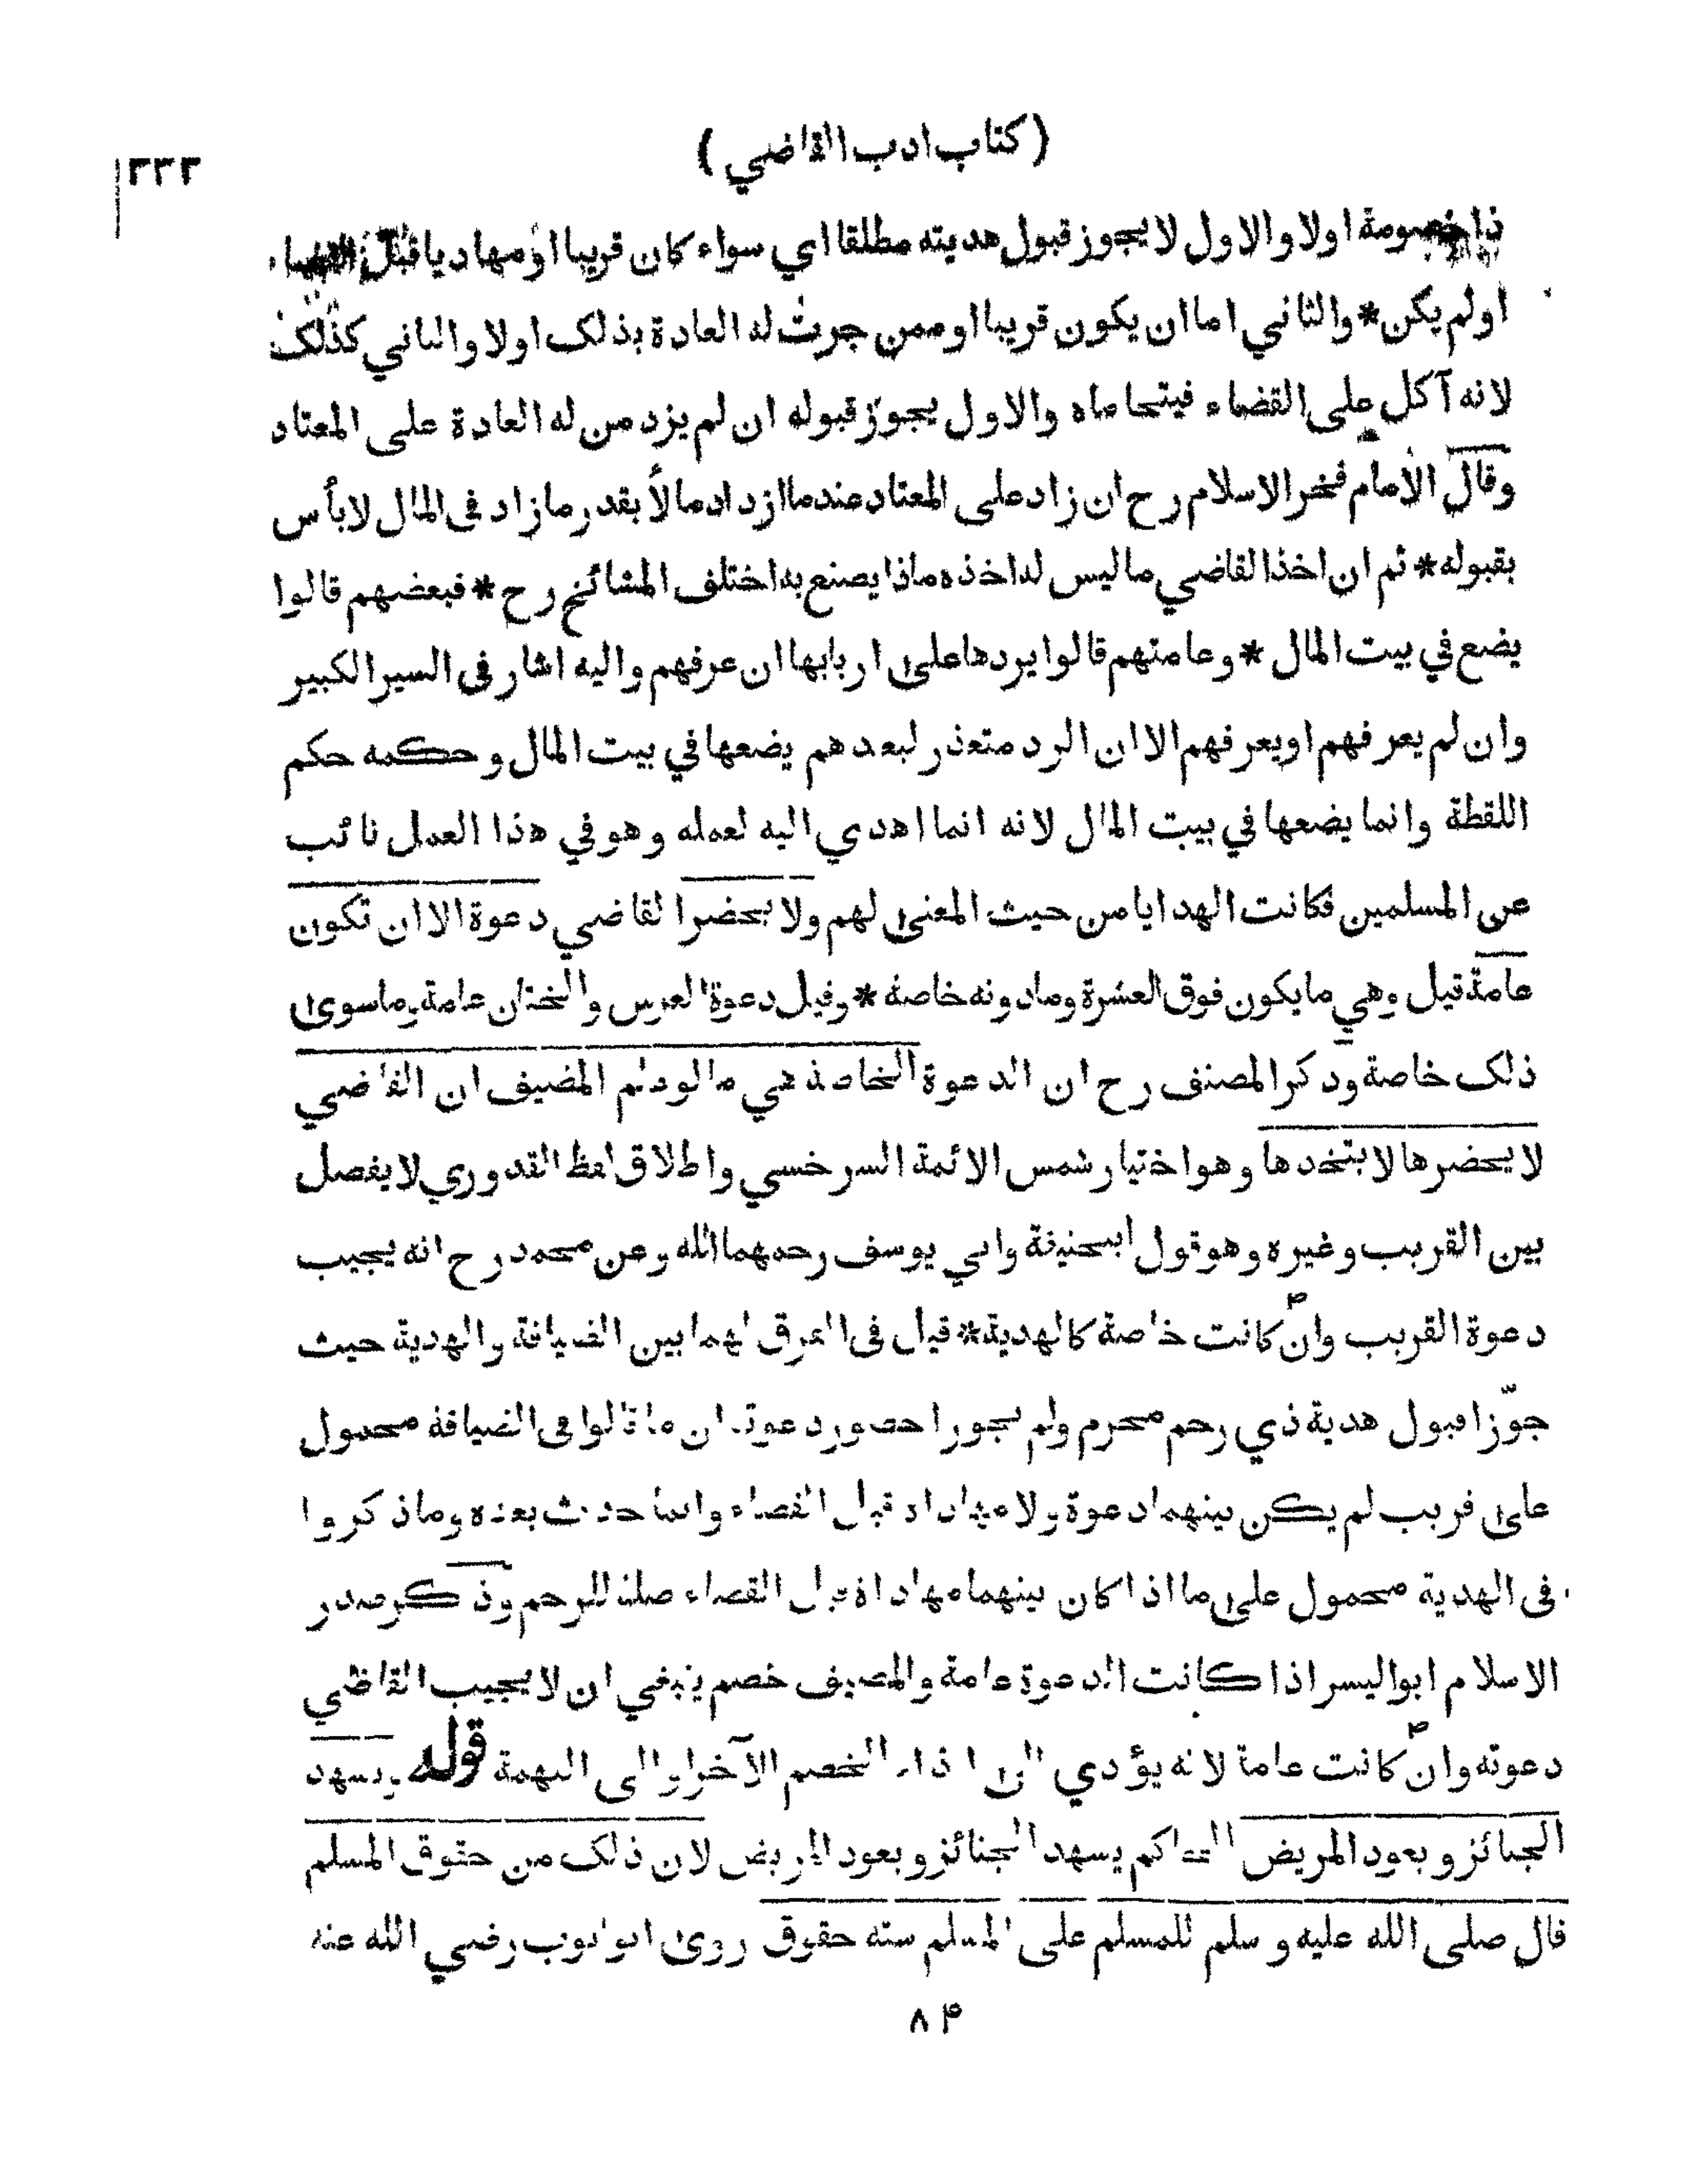 (كتاب ادب القاضي)
٣٣٣
ذا خصومة اولا والاول لا يجوز قبول هديته مطلقا اي سواء كان قريبا او مهاديا قبل القضاء
او لم يكن * والثاني اما ان يكون قريبا او ممن جرت له العادة بذلك اولا والثاني كذلك
لانه آكل على القضاء فيتحاماه والاول يجوز قبوله ان لم يزد من له العادة على المعتاد
وقال الامام فخر الاسلام رح ان زاد على المعتاد عند ما ازداد مالاً بقدر ما زاد فى المال لا بأس
بقبوله * ثم ان اخذ القاضي ما ليس له اخذه ماذا يصنع به اختلف المشائخ رح * فبعضهم قالوا
يضع في بيت المال * وعامتهم قالوا يردها على اربابها ان عرفهم واليه اشار فى السير الكبير
وان لم يعرفهم او يعرفهم الا ان الرد متعذر لبعدهم يضعها في بيت المال وحكمه حكم
اللقطة وانما يضعها في بيت المال لانه انما اهدي اليه لعمله وهو في هذا العمل نائب
عن المسلمين فكانت الهدايا من حيث المعنى لهم ولا يحضر القاضي دعوة الا ان تكون
عامة قيل وهي ما يكون فوق العشرة وما دونه خاصة * وقيل دعوة العرس والختان عامة وما سوى
ذلك خاصة وذكر المصنف رح ان الدعوة الخاصة هي ما لو علم المضيف ان القاضي
لا يحضرها لا يتخذها وهو اختيار شمس الائمة السرخسي واطلاق لفظ القدوري لا يفصل
بين القريب وغيره وهو قول ابيحنيفة وابي يوسف رحمهما الله وعن محمد رح انه يجيب
دعوة القريب وان كانت خاصة كالهدية * قيل فى الفرق لهما بين الضيافة والهدية حيث
جوّزا قبول هدية ذي رحم محرم ولم يجوزا حضور دعوته ان ما قالوا فى الضيافة محمول
على قريب لم يكن بينهما دعوة ولا مهاداة قبل القضاء وانما حدث بعده وما ذكروا
فى الهدية محمول على ما اذا كان بينهما مهاداة قبل القضاء صلة للرحم وذكر صدر
الاسلام ابو اليسر اذا كانت الدعوة عامة والمضيف خصم ينبغي ان لا يجيب القاضي
دعوته وان كانت عامة لانه يؤدي الى ايذاء الخصم الآخر او الى التهمة قوله ويشهد
الجنائز ويعود المريض الحاكم يشهد الجنائز ويعود المريض لان ذلك من حقوق المسلم
قال صلى الله عليه وسلم للمسلم على المسلم ستة حقوق روى ابو ايوب رضي الله عنه
٨۴